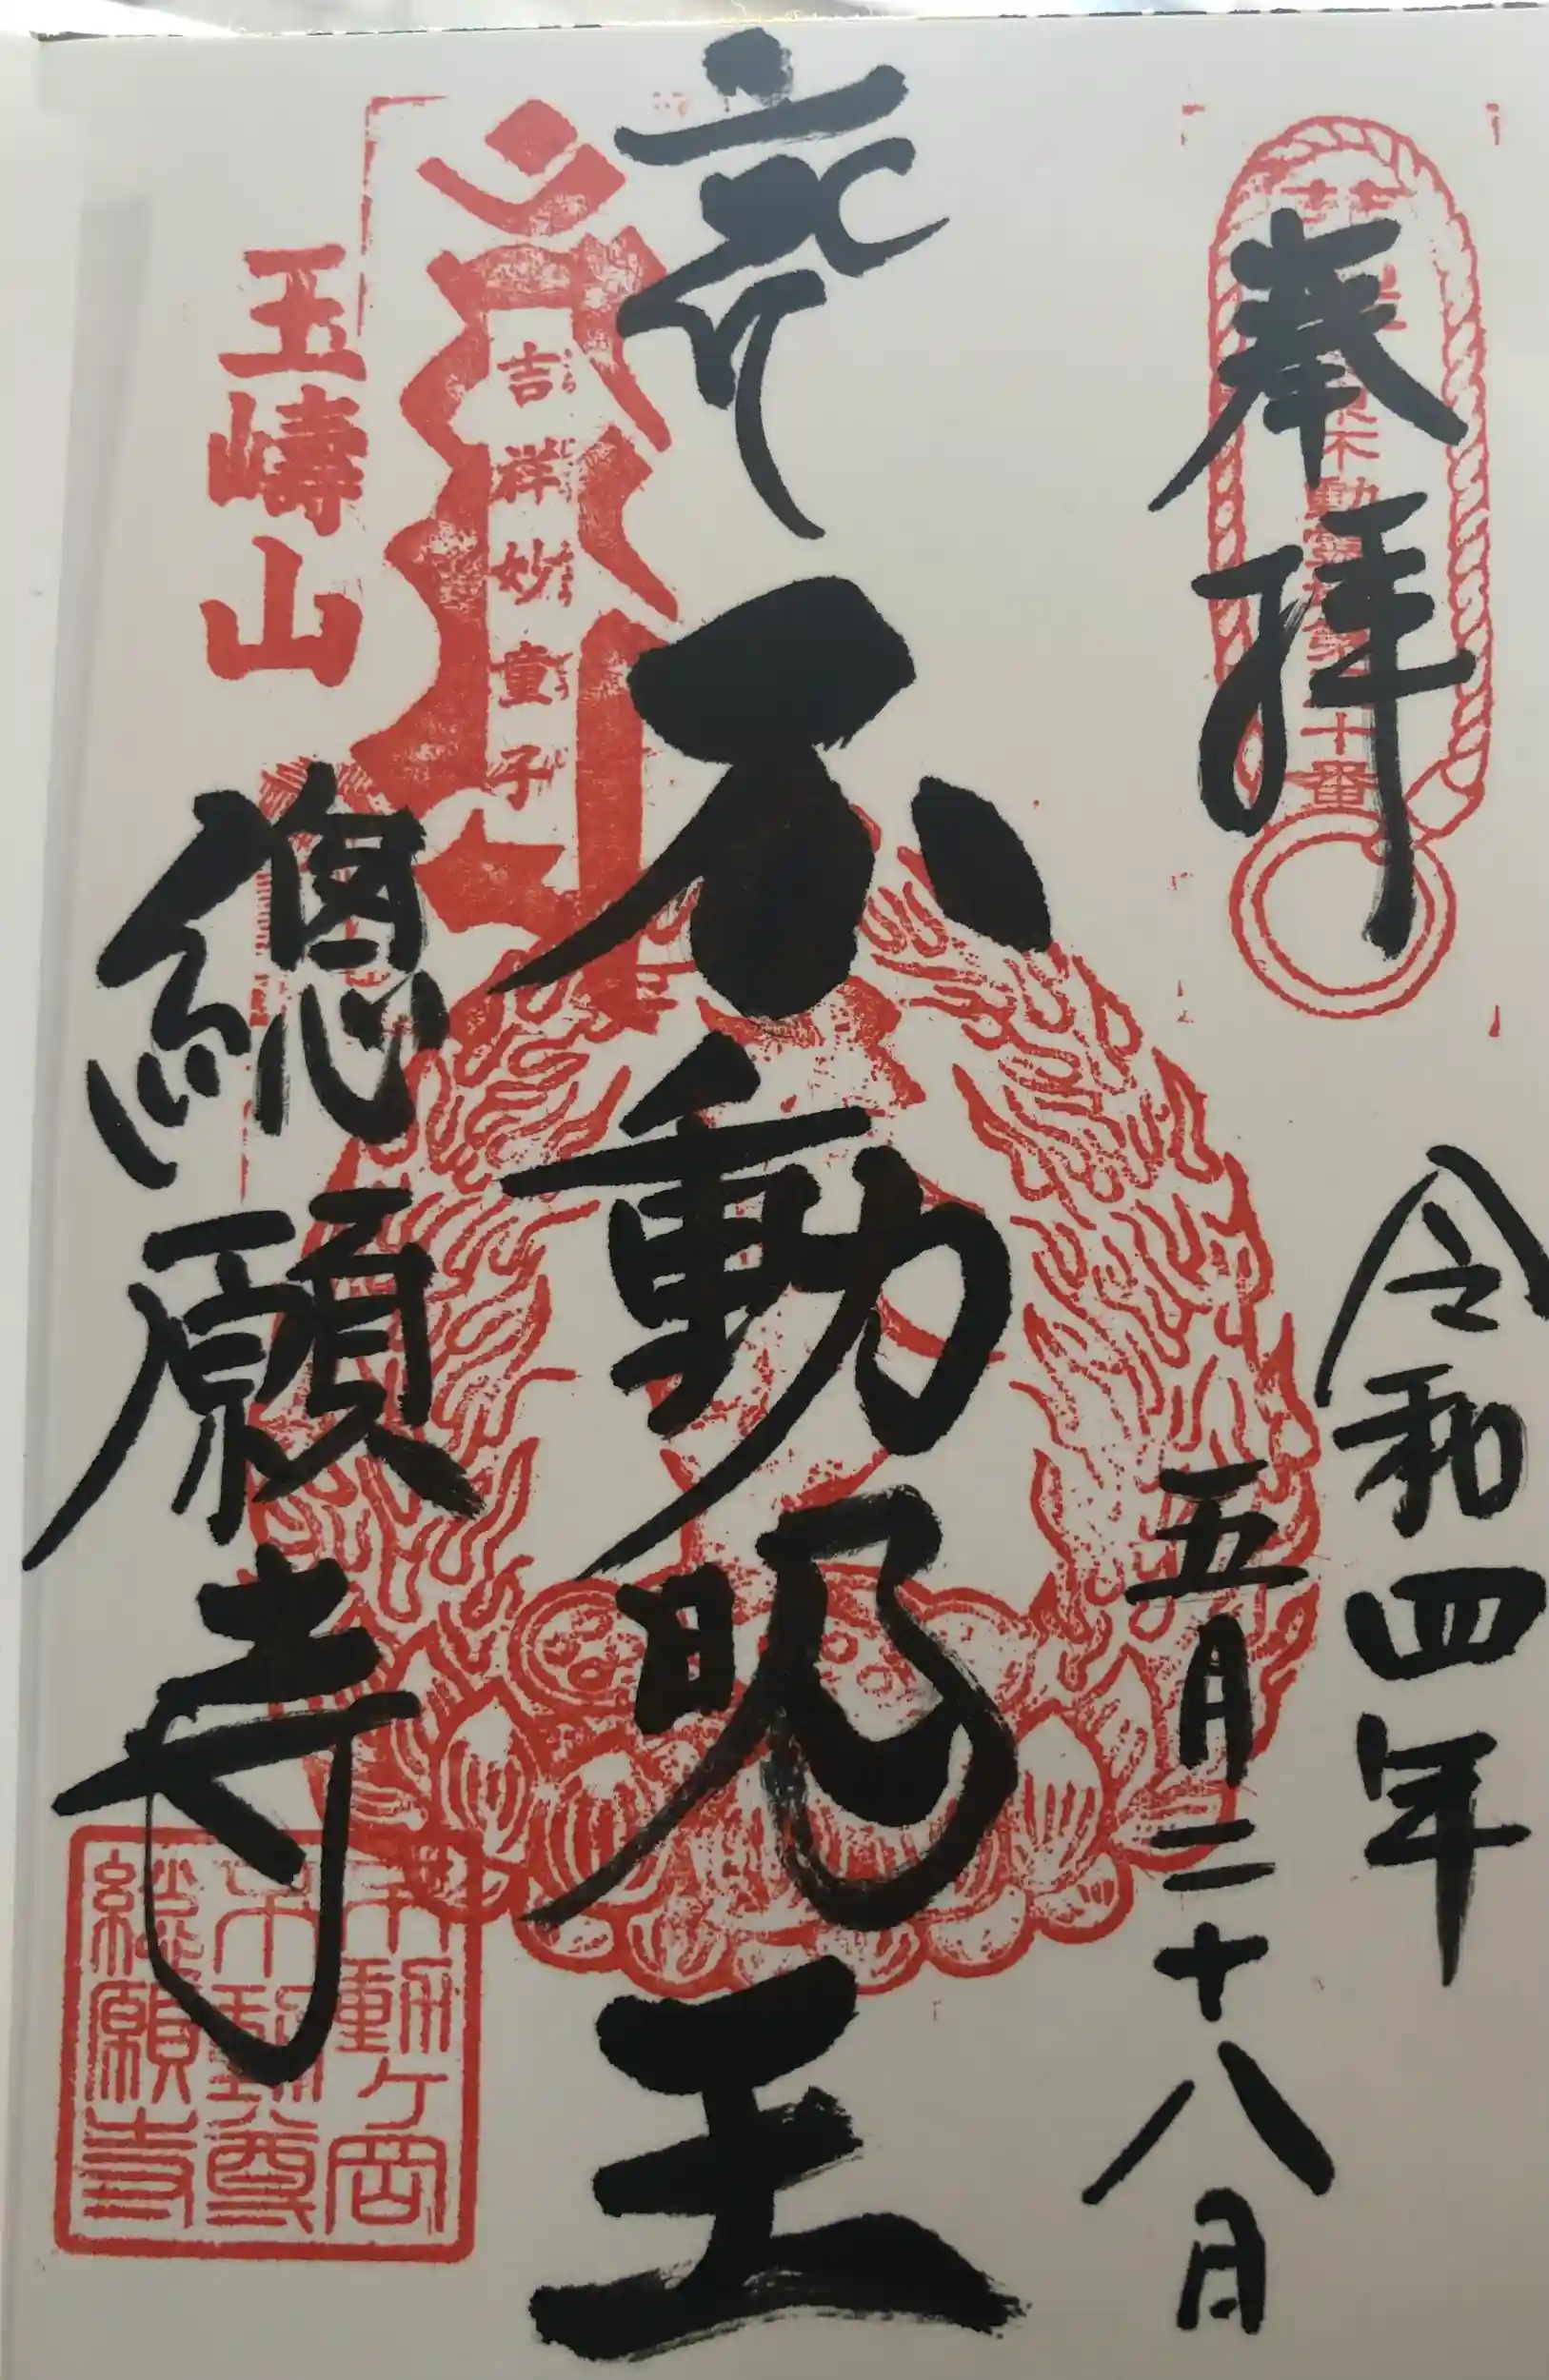 奉拝
十番
令和四年
五月二十八日
不動明王
吉祥妙童子
玉嶹山
總願寺
不動ヶ岡
不動尊
總願寺